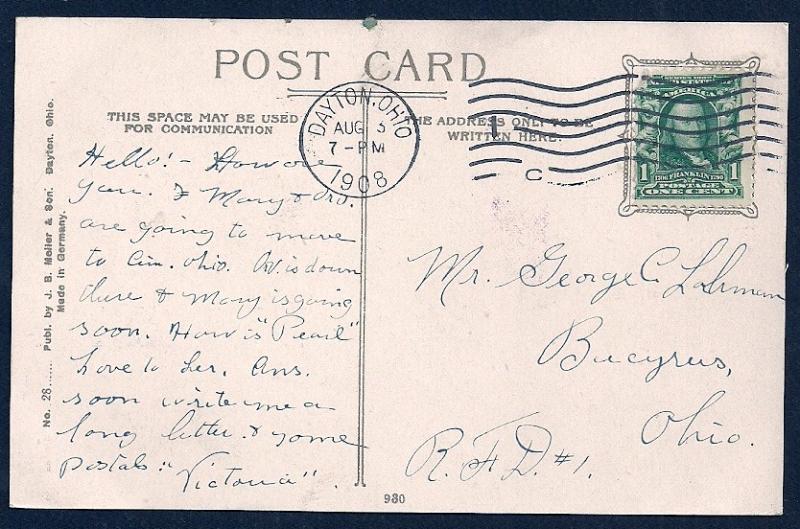 POST CARD
THIS SPACE MAY BE USED
FOR COMMUNICATION
THE ADDRESS ONLY TO BE
WRITTEN HERE.
DAYTON, OHIO
AUG 3
7-PM
1908
1
C
AMERICA
1 FRANKLIN 1
POSTAGE
ONE CENT
Hello! - How are
you. & Mary &
are going to move
to Cin. Ohio. is down
there & Mary is going
soon. How is "Pearl"
Love to her. Ans.
soon write me a
long letter & some
postals "
Victoria".
Mr. George C. Lohrman
Bucyrus,
Ohio.
R.F.D. #1.
No. 28...... Publ. by J. B. Meiler & Son. Dayton, Ohio.
Made in Germany.
930